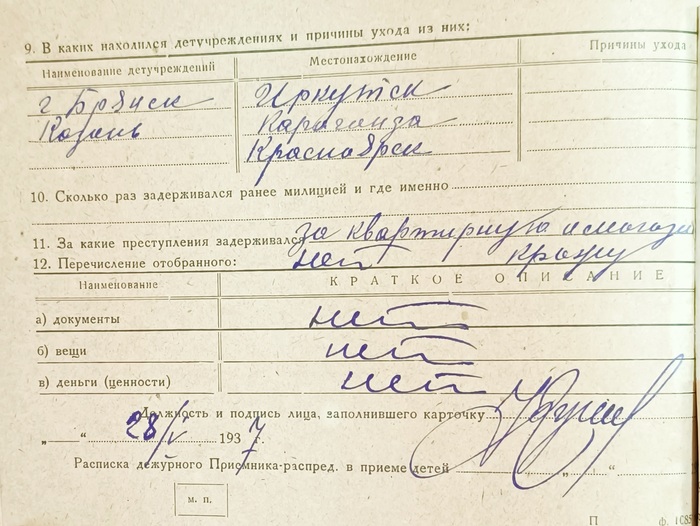 9. В каких находился детучреждениях и причины ухода из них:
Наименование детучреждений Местонахождение Причины ухода
г Брянск Иркутск
Казань Караганда
Красноярск
10. Сколько раз задерживался ранее милицией и где именно
11. За какие преступления задерживался за квартирную и магази
кражу
12. Перечисление отобранного: нет
Наименование КРАТКОЕ ОПИСАНИЕ
а) документы нет
б) вещи нет
в) деньги (ценности) нет
Должность и подпись лица, заполнившего карточку
„ “ 28/V 1937
Расписка дежурного Приемника-распред. в приеме детей „ “
м. п.
П ф. 1085